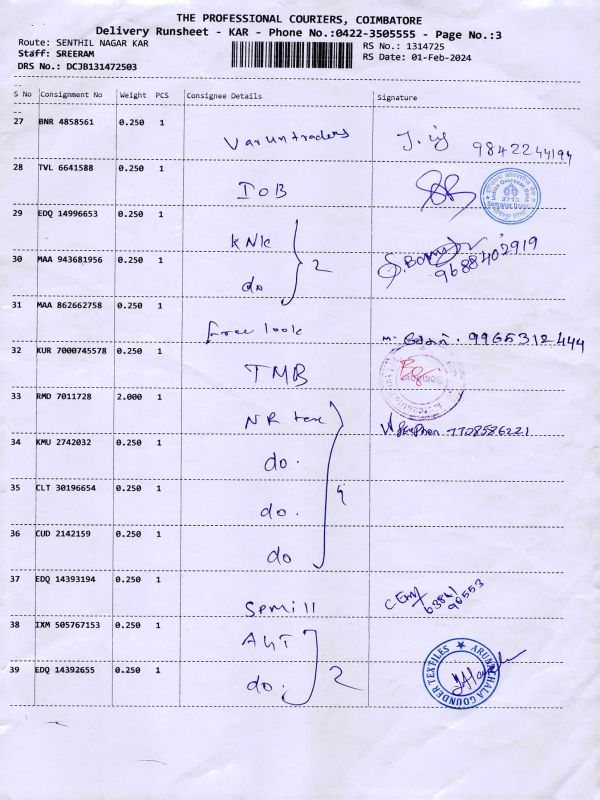 THE PROFESSIONAL COURIERS, COIMBATORE
Delivery Runsheet - KAR - Phone No.:0422-3505555 - Page No.:3
Route: SENTHIL NAGAR KAR
RS No.: 1314725
Staff: SREERAM
RS Date: 01-Feb-2024
DRS No.: DCJB131472503
S No Consignment No Weight PCS Consignee Details Signature
27 BNR 4858561 0.250 1
Varuntraders 9842244194
28 TVL 6641588 0.250 1
IOB
29 EDQ 14996653 0.250 1
KNK
30 MAA 943681956 0.250 1
do 2 9688402919
31 MAA 862662758 0.250 1
Free look 9965312444
32 KUR 7000745578 0.250 1
TMB
33 RMD 7011728 2.000 1
NR tex 7708586221
34 KMU 2742032 0.250 1
do.
35 CLT 30196654 0.250 1
do.
36 CUD 2142159 0.250 1
do
37 EDQ 14393194 0.250 1
63841
96553
38 IXM 505767153 0.250 1
39 EDQ 14392655 0.250 1
do. 2
GOUNDER TEXTILES